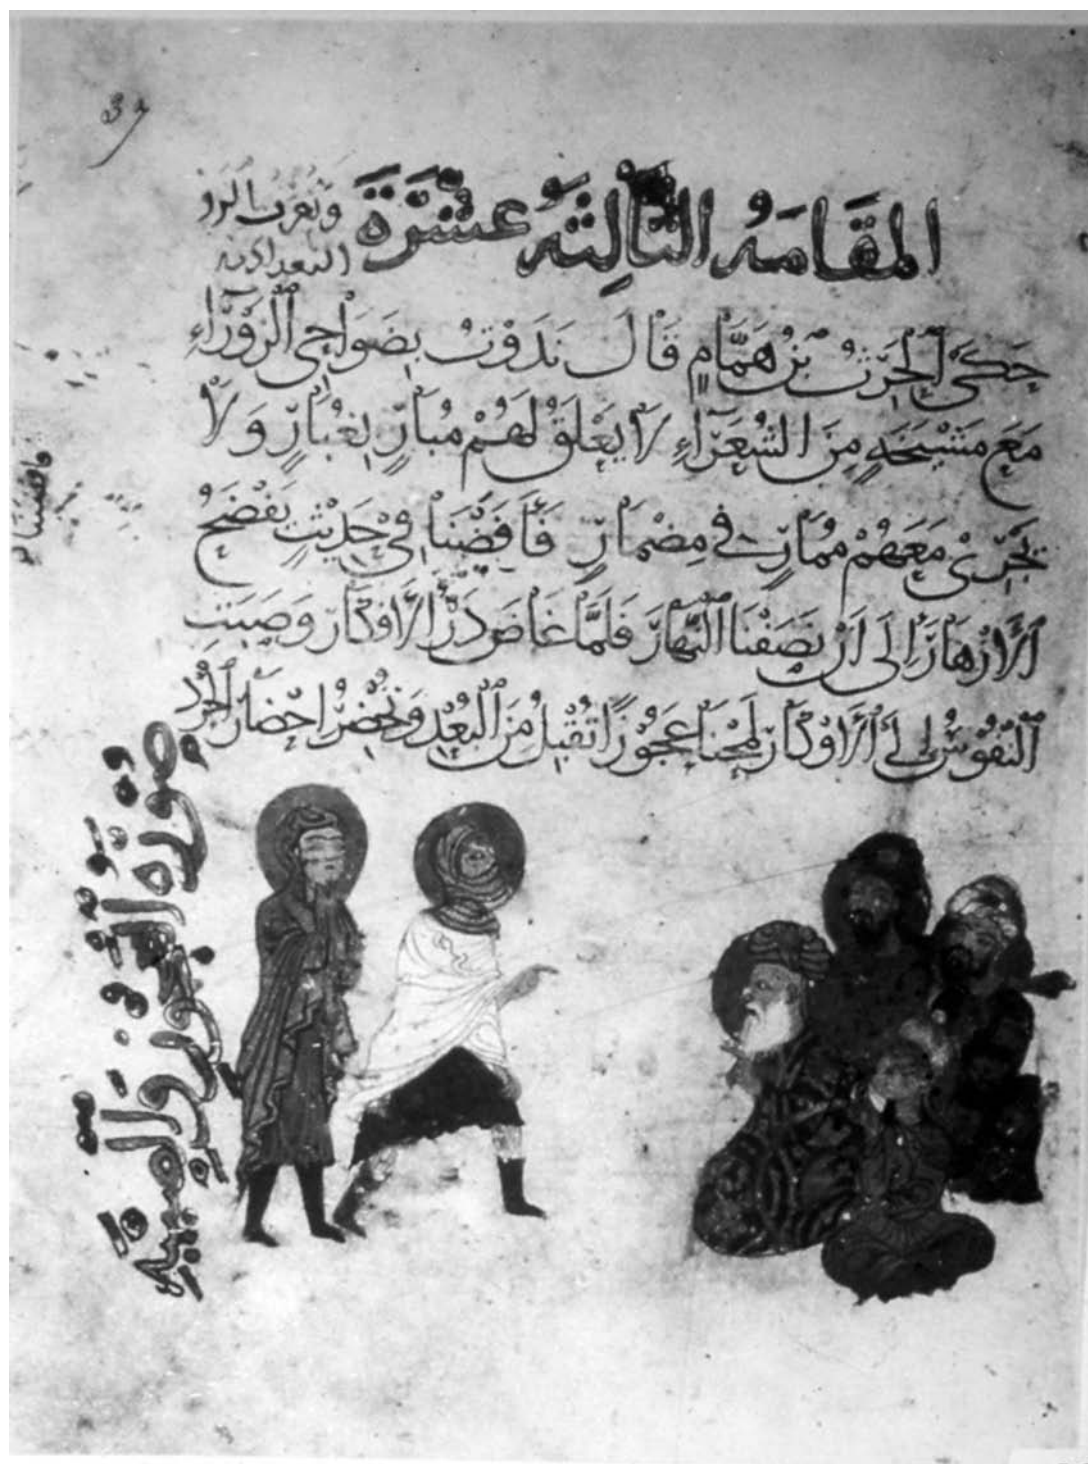 37
المقامه الثالثه عشرة
وتعرف بالزور
البغدادية
حَكَى الحرثُ بنُ هَمَّامٍ قَالَ نَدَوْتُ بِضَوَاحِى الزَوْرَآءِ
مَعَ مَشْيَخَةٍ مِنَ الشُعَرَآءِ لَا يَعْلَقُ لَهُمْ مُبَارٍ بِغُبَارٍ وَلَا
يَجْرِىْ مَعَهُمْ مُمَارٍ فى مِضْمَارٍ فَأَفَضْنَا فِىْ حَدِيْثٍ يَفْضَحُ
الْأَزْهَارَ اِلَى اَنْ نَصَفْنَا النَّهَارَ فَلَمَّا غَاضَ دَرُّ الْأَفْكَارِ وَصَبَتِ
النُّفُوْسُ اِلَى الْأَوْكَارِ لَمَحْنَا عَجُوْزًا تُقْبِلُ مِنَ الْبُعْدِ وَتُحْضِرُ اِحْضَارَ الْجُرْدِ
فافضنا
صورة